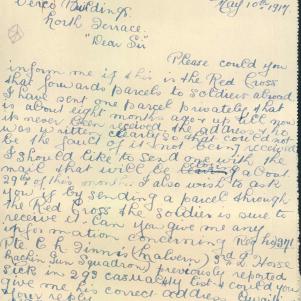 Verco Buildings
May 10th 1917.
North Terrace.
"Dear Sir"
Please could you
inform me if this is the Red Cross
that forwards parcels to soldiers abroad
I have sent one parcel privately that
is about eight months ago & up till now
it never been received the address too
was written clearly so that could not
be the fault of it not being received
I should like to send one with the
mail that will be leaving about
29th of this month. I also wish to ask
you if by sending a parcel through
the Red Cross the soldier is sure to
receive it. Can you give me any
information concerning
Pte C R Finnis (Malvern) 3rd L Horse
Machine Gun Squadron) previously reported
sick in 293 casualty list & could you
give me his correct address